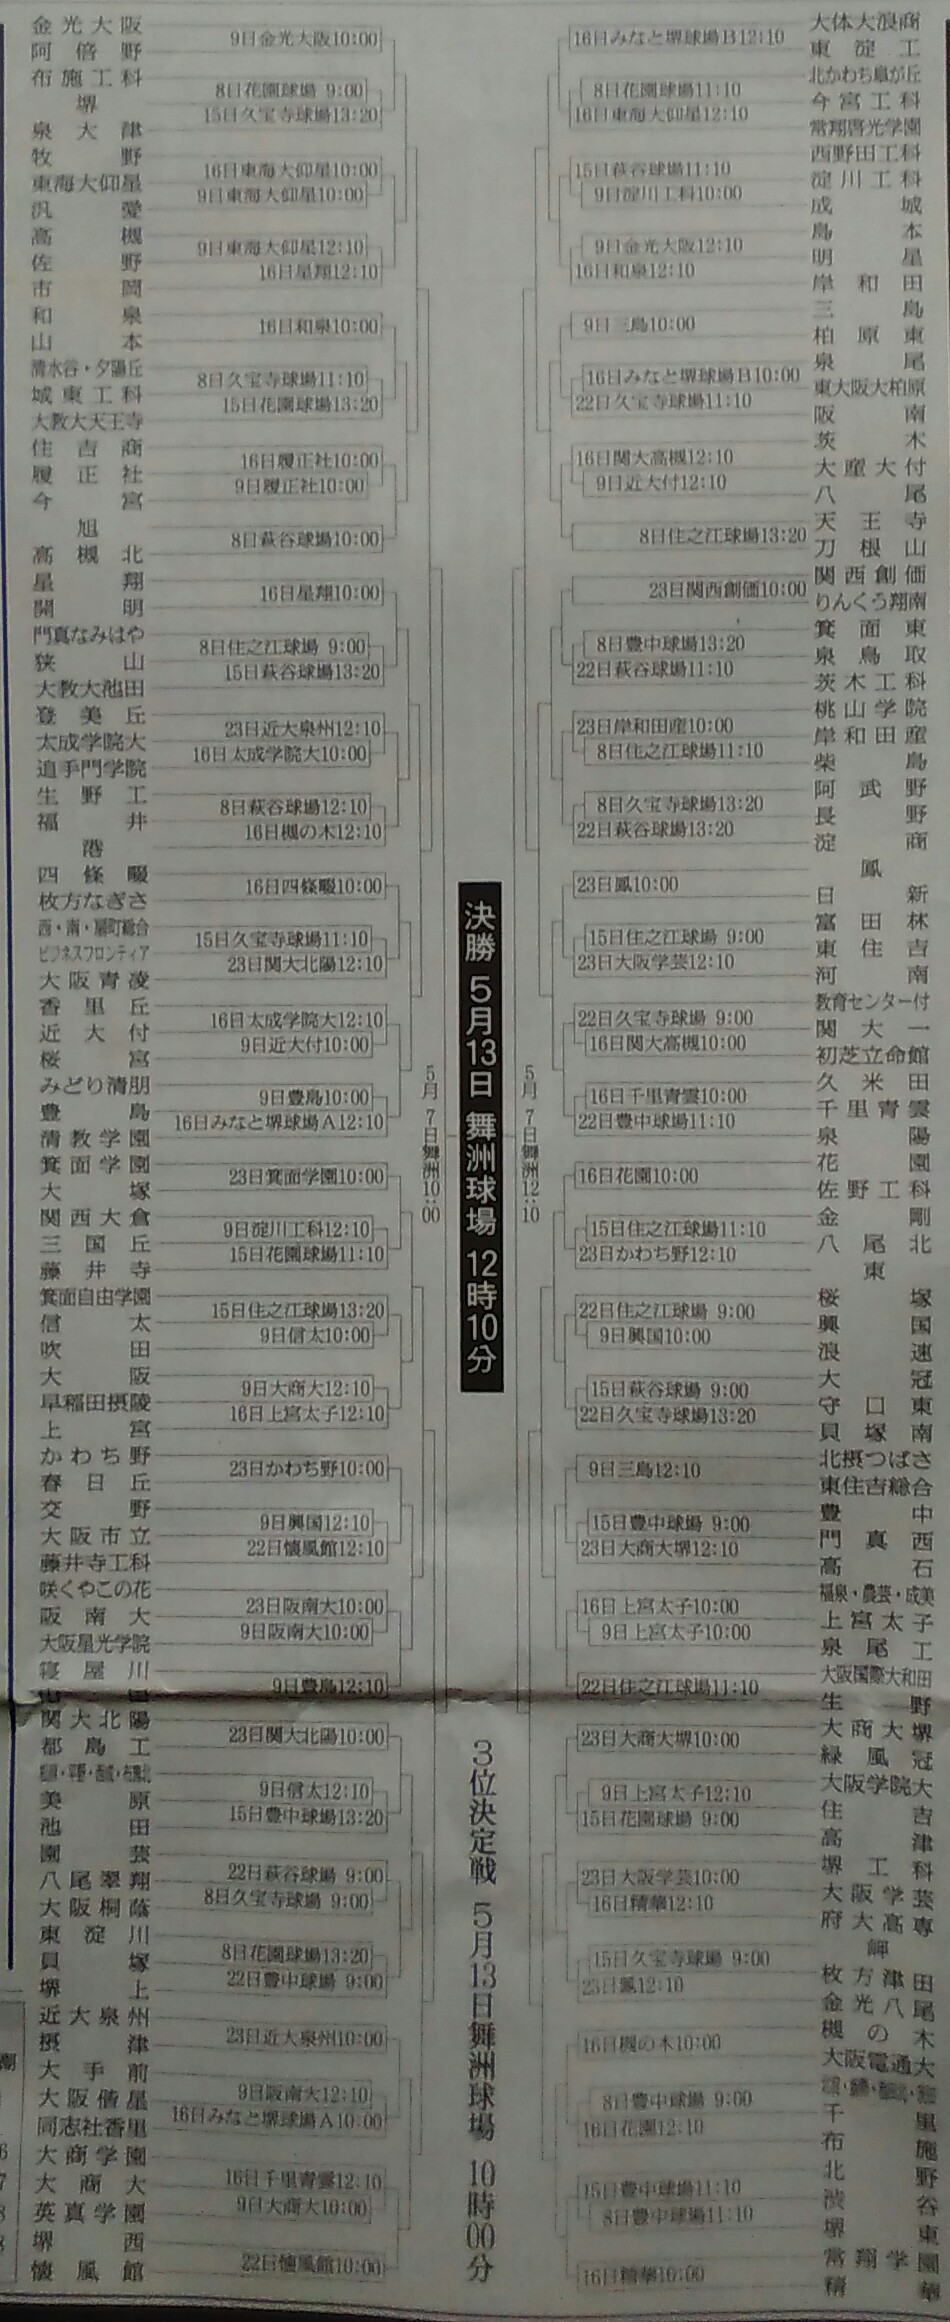 金光大阪
阿倍野
布施工科
堺
泉大津
牧野
東海大仰星
汎愛
高槻
佐野
市岡
和泉
山本
清水谷・夕陽丘
城東工科
大教大天王寺
住吉商
履正社
今宮
旭
高槻北
星翔
開明
門真なみはや
狭山
大教大池田
登美丘
太成学院大
追手門学院
生野工
福井
港
四條畷
枚方なぎさ
西・南・扇町総合
ビジネスフロンティア
大阪青凌
香里丘
近大付
桜宮
みどり清朋
豊島
清教学園
箕面学園
大塚
関西大倉
三国丘
藤井寺
箕面自由学園
信太
吹田
大阪
早稲田摂陵
上宮
かわち野
春日丘
交野
大阪市立
藤井寺工科
咲くやこの花
阪南大
大阪星光学院
寝屋川
関大北陽
都島工
美原
池田
園芸
八尾翠翔
大阪桐蔭
東淀川
貝塚
堺上
近大泉州
摂津
大手前
大阪偕星
同志社香里
大商学園
大商大
英真学園
堺西
懐風館
9日金光大阪10:00
8日花園球場 9:00
15日久宝寺球場13:20
16日東海大仰星10:00
9日東海大仰星10:00
9日東海大仰星12:10
16日星翔12:10
16日和泉10:00
8日久宝寺球場11:10
15日花園球場13:20
16日履正社10:00
9日履正社10:00
8日萩谷球場10:00
16日星翔10:00
8日住之江球場 9:00
15日萩谷球場13:20
23日近大泉州12:10
16日太成学院大10:00
8日萩谷球場12:10
16日槻の木12:10
16日四條畷10:00
15日久宝寺球場11:10
23日関大北陽12:10
16日太成学院大12:10
9日近大付10:00
9日豊島10:00
16日みなと堺球場A12:10
23日箕面学園10:00
9日淀川工科12:10
15日花園球場11:10
15日住之江球場13:20
9日信太10:00
9日大商大12:10
16日上宮太子12:10
23日かわち野10:00
9日興国12:10
22日懐風館12:10
23日阪南大10:00
9日阪南大10:00
9日豊島12:10
23日関大北陽10:00
9日信太12:10
15日豊中球場13:20
22日萩谷球場 9:00
8日久宝寺球場 9:00
8日花園球場13:20
22日豊中球場 9:00
23日近大泉州10:00
9日阪南大12:10
16日みなと堺球場A10:00
16日千里青雲12:10
9日大商大10:00
22日懐風館10:00
5月 7日舞洲10:00
決勝 5月13日 舞洲球場 12時10分
3位決定戦 5月13日舞洲球場 10時00分
5月 7日舞洲12:10
16日みなと堺球場B12:10
8日花園球場11:10
16日東海大仰星12:10
15日萩谷球場11:10
9日淀川工科10:00
9日金光大阪12:10
16日和泉12:10
9日三島10:00
16日みなと堺球場B10:00
22日久宝寺球場11:10
16日関大高槻12:10
9日近大付12:10
8日住之江球場13:20
23日関西創価10:00
8日豊中球場13:20
22日萩谷球場11:10
23日岸和田産10:00
8日住之江球場11:10
8日久宝寺球場13:20
22日萩谷球場13:20
23日鳳10:00
15日住之江球場 9:00
23日大阪学芸12:10
22日久宝寺球場 9:00
16日関大高槻10:00
16日千里青雲10:00
22日豊中球場11:10
16日花園10:00
15日住之江球場11:10
23日かわち野12:10
22日住之江球場 9:00
9日興国10:00
15日萩谷球場 9:00
22日久宝寺球場13:20
9日三島12:10
15日豊中球場 9:00
23日大商大堺12:10
16日上宮太子10:00
9日上宮太子10:00
22日住之江球場11:10
23日大商大堺10:00
9日上宮太子12:10
15日花園球場 9:00
23日大阪学芸10:00
16日精華12:10
15日久宝寺球場 9:00
23日鳳12:10
16日槻の木10:00
8日豊中球場 9:00
16日花園12:10
15日豊中球場11:10
8日豊中球場11:10
16日精華10:00
大体大浪商
東淀工
北かわち皐が丘
今宮工科
常翔啓光学園
西野田工科
淀川工科
成城
島本
明星
岸和田
三島
柏原東
泉尾
東大阪大柏原
阪南
茨木
大産大付
八尾
天王寺
刀根山
関西創価
りんくう翔南
箕面東
泉鳥取
茨木工科
桃山学院
岸和田産
柴島
阿武野
長野
淀商
鳳
日新
富田林
東住吉
河南
教育センター付
関大一
初芝立命館
久米田
千里青雲
泉陽
花園
佐野工科
金剛
八尾北
東
桜塚
興国
浪速
大冠
守口東
貝塚南
北摂つばさ
東住吉総合
豊中
門真西
高石
福泉・農芸・成美
上宮太子
泉尾工
大阪国際大和田
生野
大商大堺
緑風冠
大阪学院大
住吉
高津
堺工科
大阪学芸
府大高専
岬
枚方津田
金光八尾
槻の木
大阪電通大
千里
布施
北野
渋谷
堺東
常翔学園
精華